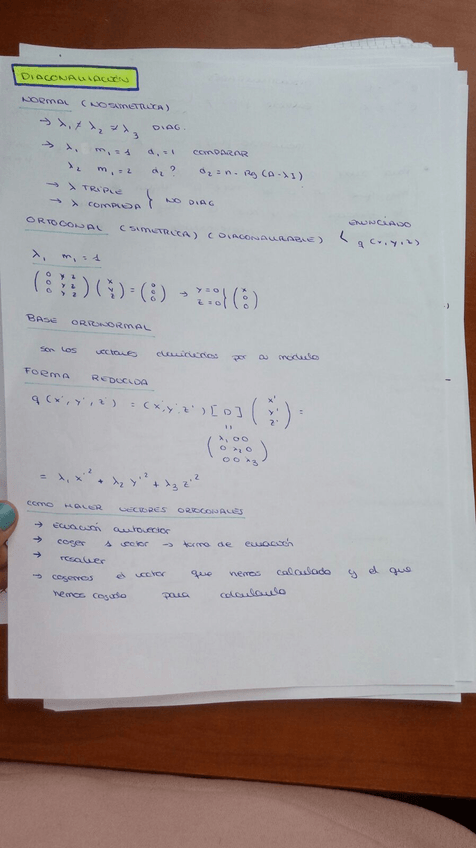 DIAGONALIZACIÓN
NORMAL (NO SIMETRICA)
→ λ₁ ≠ λ₂ ≠ λ₃ DIAG.
→ λ₁ m₁ = 1 d₁ = 1 COMPARAR
λ₂ m₁ = 2 d₂ ? d₂ = n - Rg (A - λI)
→ λ TRIPLE
→ λ COMPLEJA } NO DIAG
ORTOGONAL (SIMETRICA) (DIAGONALIZABLE) < ENUNCIADO
q (x, y, z)
λ₁ m₁ = 1
(0 y z / 0 y z / 0 y z) (x / y / z) = (0 / 0 / 0) → y = 0 / z = 0 } (x / 0 / 0)
BASE ORTONORMAL
son los vectores divididos por su modulo
FORMA REDUCIDA
q (x', y', z') = (x', y', z') [D] (x' / y' / z') =
||
(λ₁ 0 0 / 0 λ₂ 0 / 0 0 λ₃)
= λ₁ x'² + λ₂ y'² + λ₃ z'²
COMO HALLAR VECTORES ORTOGONALES
→ Ecuación autovector
→ coger 1 vector → forma de ecuación
→ resolver
→ cogemos el vector que hemos calculado y el que
hemos cogido para calcularlo